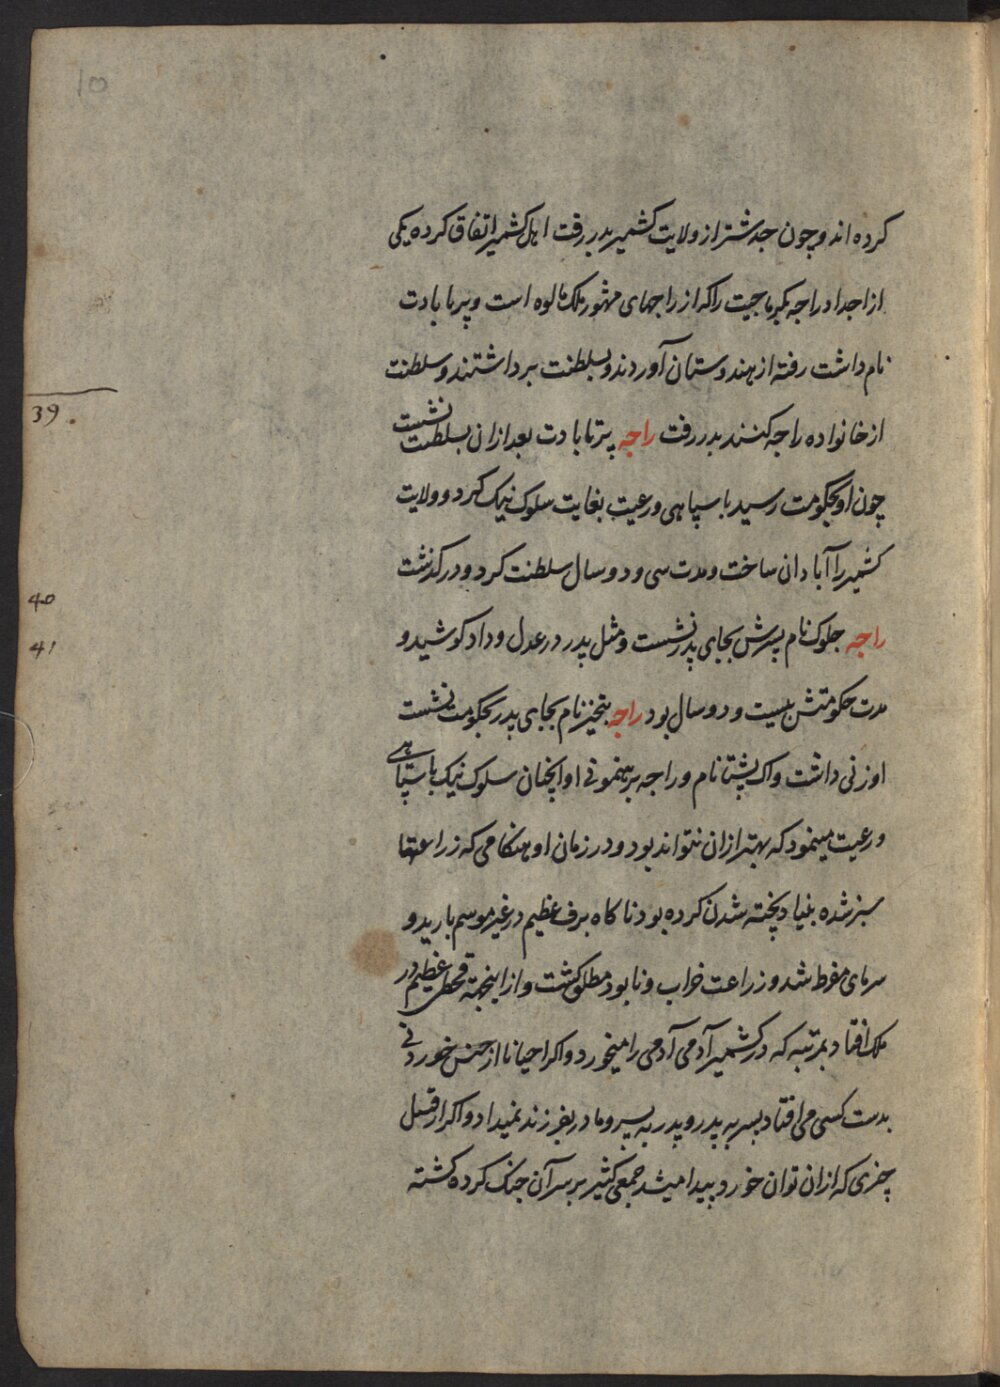 10
کرده اند و چون جدشتر از ولایت کشمیر بدر رفت اهل کشمیر اتفاق کرده یکی
از اجداد راجه بکرماجیت را که از راجهای مشهور ملک مالوه است و پرتابادت
نام داشت رفته از هندوستان آوردند و بسلطنت برداشتند و سلطنت
39.
از خانواده راجه کنند بدر رفت راجه پرتابادت بعد ازان بسلطنت نشست
چون او بحکومت رسید با سپاهی و رعیت بغایت سلوک نیک کرد و ولایت
کشمیر را آبادان ساخت و مدت سی و دو سال سلطنت کرد و درکذشت
40
41
راجه جلوک نام پسرش بجای پدر نشست و مثل پدر در عدل و داد کوشید و
مدت حکومتش بیست و دو سال بود راجه بنجیر نام بجای پدر بحکومت نشست
او زنی داشت واک پشتا نام و راجه برهنمونی او انچنان سلوک نیک با سپاهی
و رعیت مینمود که بهتر ازان نتواند بود و در زمان او هنکامی که زراعتها
سبز شده بنیاد پخته شدن کرده بود ناکاه برف عظیم در غیر موسم بارید و
سرمای مفرط شد و زراعت خراب و نابود مطلق کشت و از اینجهة قحطی عظیم در
ملک افتاد بمرتبه که در کشمیر آدمی آدمی را میخورد و اکر احیانا از جنس خوردنی
بدست کسی می افتاد پسر به پدر و پدر به پسر و مادر بفرزند نمیداد و اکر از قسل
چیزی که ازان توان خورد پیدا میشد جمعی کثیر بر سر آن جنک کرده کشته